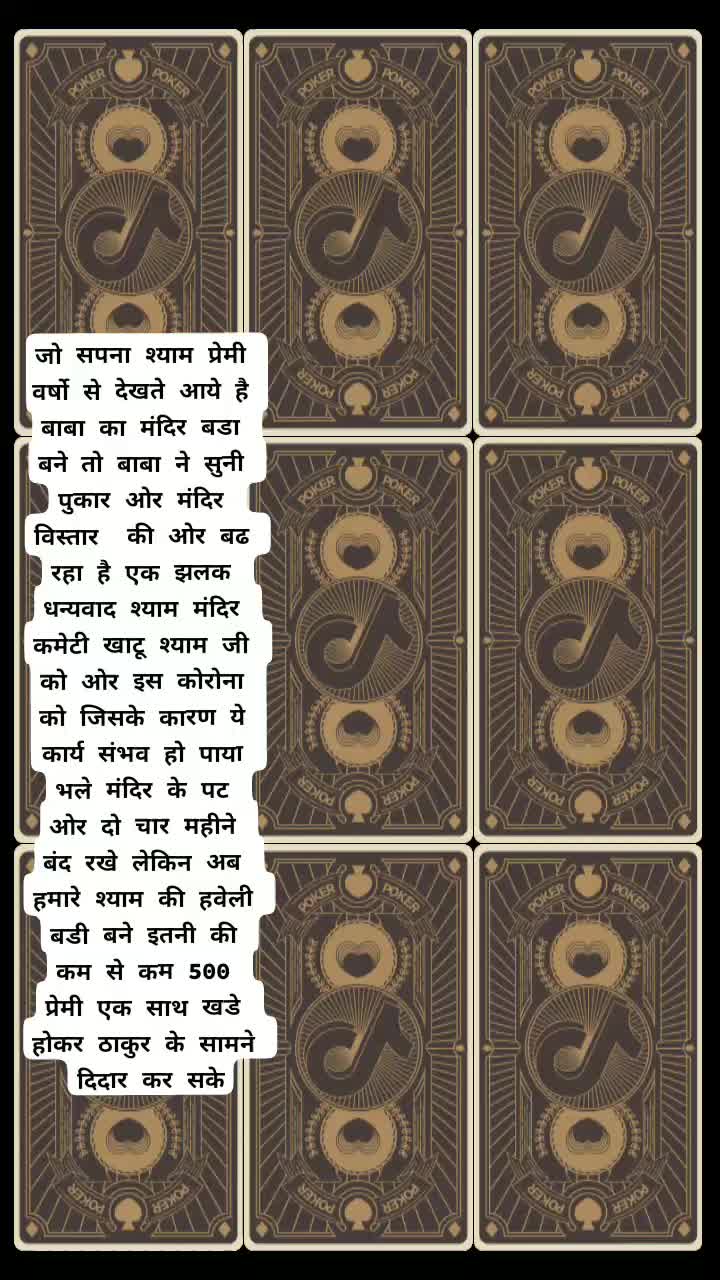 POKER POKER POKER POKER POKER POKER
जो सपना श्याम प्रेमी
वर्षो से देखते आये है
बाबा का मंदिर बडा
बने तो बाबा ने सुनी
पुकार ओर मंदिर
विस्तार की ओर बढ
रहा है एक झलक
धन्यवाद श्याम मंदिर
कमेटी खाटू श्याम जी
को ओर इस कोरोना
को जिसके कारण ये
कार्य संभव हो पाया
भले मंदिर के पट
ओर दो चार महीने
बंद रखे लेकिन अब
हमारे श्याम की हवेली
बडी बने इतनी की
कम से कम 500
प्रेमी एक साथ खडे
होकर ठाकुर के सामने
दिदार कर सके
POKER POKER POKER POKER
POKER POKER POKER POKER
POKER POKER POKER POKER
POKER POKER POKER POKER
POKER POKER POKER POKER POKER POKER